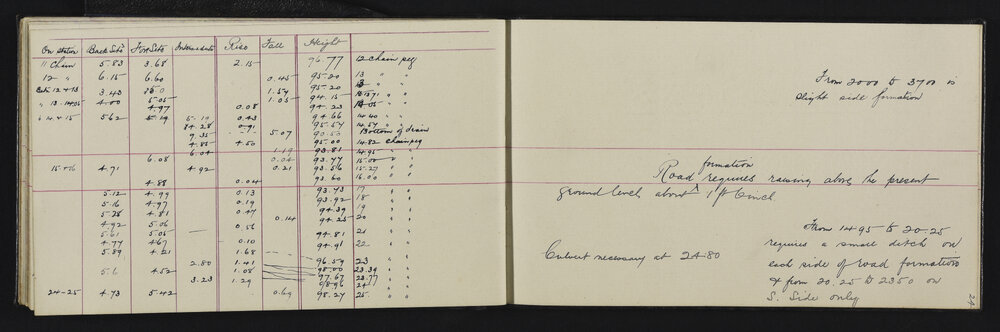 On Station Back Sits For Sits Intermediate Rise Fall Height
11 Chain 5.83 3.68 2.15 96.77 12 chain peg
12 " 6.15 6.60 0.45 95.20 13 " "
Btn 12 & 13 3.43 1.54 95.20
" 13-14 4.00 5.05 1.05 94.15 " "
4.97 0.08 94.23 14.05 " "
" 14 & 15 5.62 5.19 5.19 0.43 94.66 14.40 " "
0.91 95.57 14.57 " "
9.35 5.07 90.50 Bottom of drain
4.85 4.50 95.00 14.82 Chain peg
6.04 1.19 93.81 14.95 " "
6.08 0.04 93.77 15.00 " "
15 & 16 4.71 4.92 0.21 93.56 15.27 " "
4.88 0.04 93.60 16.00 " "
5.12 4.99 0.13 93.73 17 " "
5.16 4.97 0.19 93.92 18 " "
5.28 4.81 0.47 94.39 19 " "
4.92 5.06 0.14 94.25 20 " "
5.61 5.05 0.56 94.81 21 " "
4.77 4.67 0.10 94.91 22 " "
5.89 4.21 1.68
2.80 1.41 96.59 23 " "
5.6 4.52 1.08 98.00 23.39 " "
3.23 1.29 97.67 23.77 " "
98.96 24 " "
24-25 4.73 5.42 0.69 98.27 25 " "
From 2000 to 3700 is
slight side formation
formation
Road requires raising above the present
ground level about 1 ft 6 inch
Culvert necessary at 24.80
From 14.95 to 20.25
requires a small ditch on
each side of road formation
& from 20.25 to 23.50 on
S. Side only
24